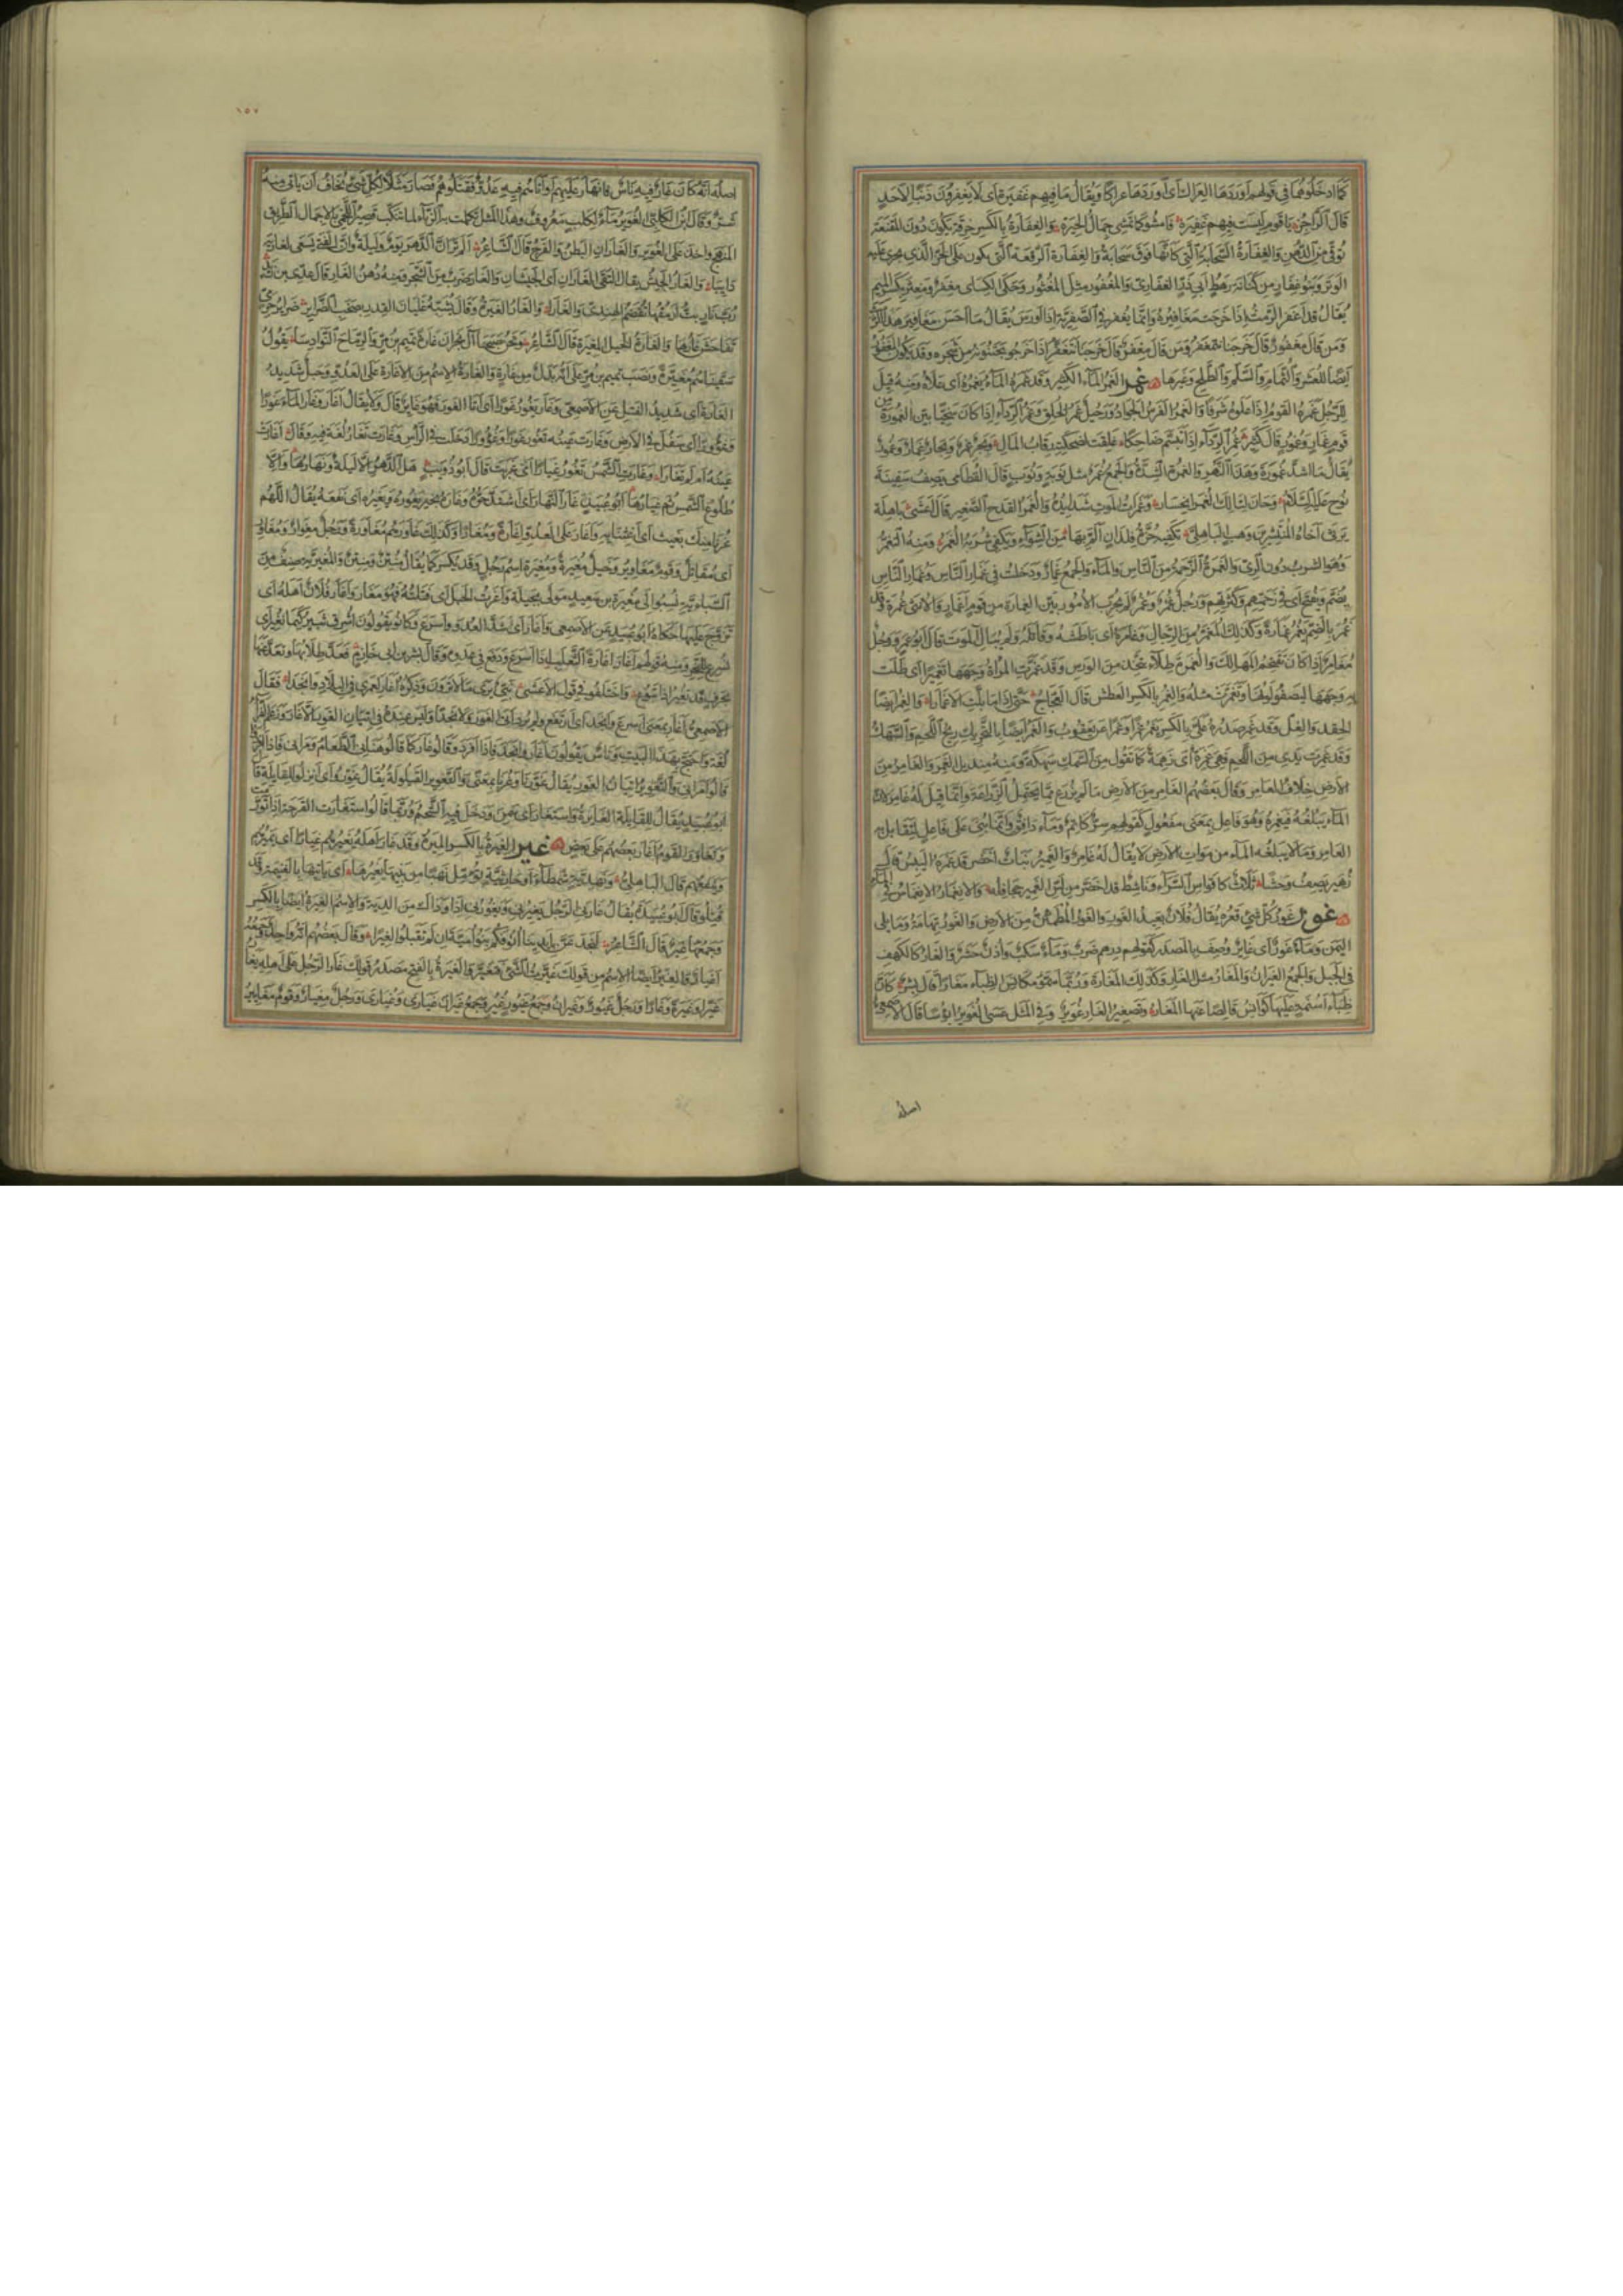 كما ادخلوهما في قولهم اوردها العراك اى اوردها عراكا ويقال ما فيهم غفيرة اى لا يغفرون ذنبا لاحد
قال الراجز يا قوم ليست فيهم غفيرة فامشوا كما تمشى جمال الحيرة والغفارة بالكسر خرقة تكون دون المقنعة
توقى من الدهن والغفارة السحابة التى كانها فوق سحابة والغفارة الرقعة التى تكون على الحز الذى يجرى عليه
الوتر وبنو غفار من كنانة رهط ابى ذر الغفارى والمغفور مثل المغثور وحكى الكساى مغفر ومغثر بكسر الميم
يقال قد اغفر الرمث اذا خرجت مغافيره وانما يغفر فى الصفرية اذا اورس يقال ما احسن مغافير هذا الرمث
ومن قال مغفور قال خرجنا نتمغفر ومن قال مغفر قال خرجنا نتغفر اذا خرجوا يجتنونه من شجره وقد يكون المغفور
ايضا للعشر والثمام والسلم والطلح وغيرها غمر الغمر الماء الكثير وقد غمره الماء يغمره اى علاه ومنه قيل
للرجل غمره القوم اذا علوه شرفا والغمر الفرس الجواد ورجل غمر الخلق وغمر الرداء اذا كان سخيا بين الغمورة من
قوم غمار وغمور قال كثير غمر الرداء اذا تبسم ضاحكا غلقت لضحكته رقاب المال وبحر غمر وبحار غمار وغمور
يقال ما اشد غمورة وهذا النهر والغمرة الشدة والجمع غمر مثل نوبة ونوب قال القطامى يصف سفينة
نوح عليه السلام وحان لتالك الغمر انحسار وغمرات الموت شدائده والغمر القدح الصغير قال اعشى باهلة
يرثى اخاه المنتشر بن وهب الباهلى تكفيه حزة فلذان الم بها من الشواء ويكفى شربه الغمر ومنه التغمر
وهو الشرب دون الرى والغمرة الزحمة من الناس والماء والجمع غمار ودخلت فى غمار الناس وغمار الناس
يضم ويفتح اى فى زحمتهم وكثرتهم ورجل غمر وغمر لم يجرب الامور بين الغمارة من قوم اغمار والانثى غمرة وقد
غمر بالضم يغمر غمارة وكذلك المغمر من الرجال وغامره اى باطشه وقاتله ولم يبال الموت قال ابو عمرو ورجل
مغامر اذا كان يقتحم المهالك والغمرة طلاء يتخذ من الورس وقد غمرت المراة وجهها تغميرا اى طلت
به وجهها ليصفو لونها وتغمرت مثله والغمر بالكسر العطش قال العجاج حتى اذا ما بلت الاغمارا والغمر ايضا
الحقد والغل وقد غمر صدره على بالكسر يغمر غمرا وغمرا عن يعقوب والغمر ايضا بالتحريك ريح اللحم والسهك
وقد غمرت يدى من اللحم فهى غمرة اى زهمة كما تقول من السمك سهكة ومنه منديل الغمر والغامر من
الارض خلاف العامر وقال بعضهم الغامر من الارض ما لم يزرع مما يحتمل الزراعة وانما قيل له غامر لان
الماء يبلغه فيغمره وهو فاعل بمعنى مفعول كقولهم سر كاتم وماء دافق وانما بنى على فاعل ليقابل به
العامر وما لا يبلغه الماء من موات الارض لا يقال له غامر والغمير نبات اخضر قد غمره اليبيس قال
زهير يصف وحشا ثلاث كاقواس السراء وناشط قد اخضر من لس الغمير جحافله والانغمار الانغماس فى الماء
غور غور كل شئ قعره يقال فلان بعيد الغور والغور المطمئن من الارض والغور تهامة وما يلى
اليمن وماء غور اى غاير وصف بالمصدر كقولهم درهم ضرب وماء سكب واذن حشر والغار كالكهف
فى الجبل والجمع الغيران والمغار مثل الغار وكذلك المغارة وربما سموا مكانس الظباء مغارا قال بشر كان
ظباء اسنمة عليها كوانس قالصا عنها المغار وتصغير الغار غوير وفى المثل عسى الغوير ابؤسا قال الاصمعى
اصله
١٥٧
اصله انه كان غار فيه ناس فانهار عليهم او اتاهم فيه عدو فقتلوهم فصار مثلا لكل شئ يخاف ان ياتى منه
شر وقال ابن الكلبى الغوير ماء لكلب معروف وهذا المثل تكلمت به الزباء لما تنكب قصير اللخمى بالاجمال الطريق
المنهج واخذ على الغوير والغاران البطن والفرج قال الشاعر الم تر ان الدهر يوم وليلة وان الفتى يسعى لغاريه
دايبا والغار الجيش يقال التقى الغاران اى الجيشان والغار ضرب من الشجر ومنه دهن الغار قال عدى بن زيد
رب نار بت ارمقها تقضم الهندى والغارا والغار الغيرة وقال يشبه غليان القدر بصخب الضراير ضراير حرمى
تفاحش غارها والغارة الخيل المغيرة قال الشاعر ونحن صبحنا آل نجران غارة تميم بن مر والرماح النوادسا يقول
سقيناهم خيلا مغيرة ونصب تميم بن مر على انه بدل من غارة والغارة الاسم من الاغارة على العدو وحبل شديد
الغارة اى شديد الفتل عن الاصمعى وغار يغور غورا اى اتى الغور فهو غاير قال ولا يقال اغار وغار الماء غورا
وغوورا اى سفل فى الارض وغارت عينه تغور غورا وغوورا دخلت فى الراس وغارت تغار لغة فيه وقال اغارت
عينه ام لم تغارا وغارت الشمس تغور غيارا اى غربت قال ابو ذويب هل الدهر الا ليلة ونهارها والا
طلوع الشمس ثم غيارها ابو عبيد غار النهار اى اشتد حره وغارهم بخير يغورهم ويغيرهم اى نفعهم يقال اللهم
غرنا منك بغيث اى اغثنا به واغار على العدو اغارة ومغارا وكذلك غاورهم مغاورة ورجل مغوار ومغاور
اى مقاتل وقوم مغاوير وخيل مغيرة ومغيرة اسم رجل وقد يكسر كما يقال منتن ومنتن والمغيرية صنف من
السبائية نسبوا الى مغيرة بن سعيد مولى بجيلة واغرت الحبل اى فتلته فهو مغار واغار فلان اهله اى
تزوج عليها حكاه ابو عبيد عن الاصمعى واغار اى شد العدو واسرع وكانوا يقولون اشرق ثبير كيما نغير اى
نسرع للنحر ومنه قولهم اغار اغارة الثعلب اذا اسرع ودفع فى عدوه وقال بشر بن ابى خازم فعد طلابها وتعد عنها
بحرف قد تغير اذا تبوع واختلفوا فى قول الاعشى نبى يرى ما لا ترون وذكره اغار لعمرى فى البلاد وانجدا فقال
الاصمعى اغار بمعنى اسرع وانجد اى ارتفع ولم يرد اتى الغور ولا نجدا وليس عنده فى اتيان الغور الا غار وزعم الفراء انها
لغة واحتج بهذا البيت وناس يقولون اغار وانجد فاذا افرد وقالوا غار كما قالوا هنانى الطعام ومرانى فاذا افردوا
قالوا امرانى والتغوير اتيان الغور يقال غورنا وغرنا بمعنى والتغوير القيلولة يقال غوروا اى انزلوا للقايلة قال
ابو عبيد يقال للقايلة الغايرة واستغار اى سمن ودخل فيه الشحم وربما قالوا استغارت القرحة اذا تورمت
وتغاور القوم اغار بعضهم على بعض غير الغيرة بالكسر الميرة وقد غار اهله يغيرهم غيارا اى يميرهم
وينفعهم قال الباهلى ونهدية شمطاء او حارثية تؤمل نهبا من بنيها يغيرها اى ياتيها بالغنيمة وقد
قتلوا قال ابو عبيدة يقال غارنى الرجل يغيرنى ويغورنى اذا وداك من الدية والاسم الغيرة ايضا بالكسر
وجمعها غير قال الشاعر لنجدعن بايدينا انوفكم بنى اميمة ان لم تقبلوا الغيرا وقال بعضهم انه واحد وجمعه
اغيار والغير ايضا الاسم من قولك غيرت الشئ فتغير والغيرة بالفتح مصدر قولك غار الرجل على اهله يغار
غيرا وغيرة وغارا ورجل غيور وغيران وجمع غيور غير وجمع غيران غيارى وغيارى ورجل مغيار وقوم مغايير